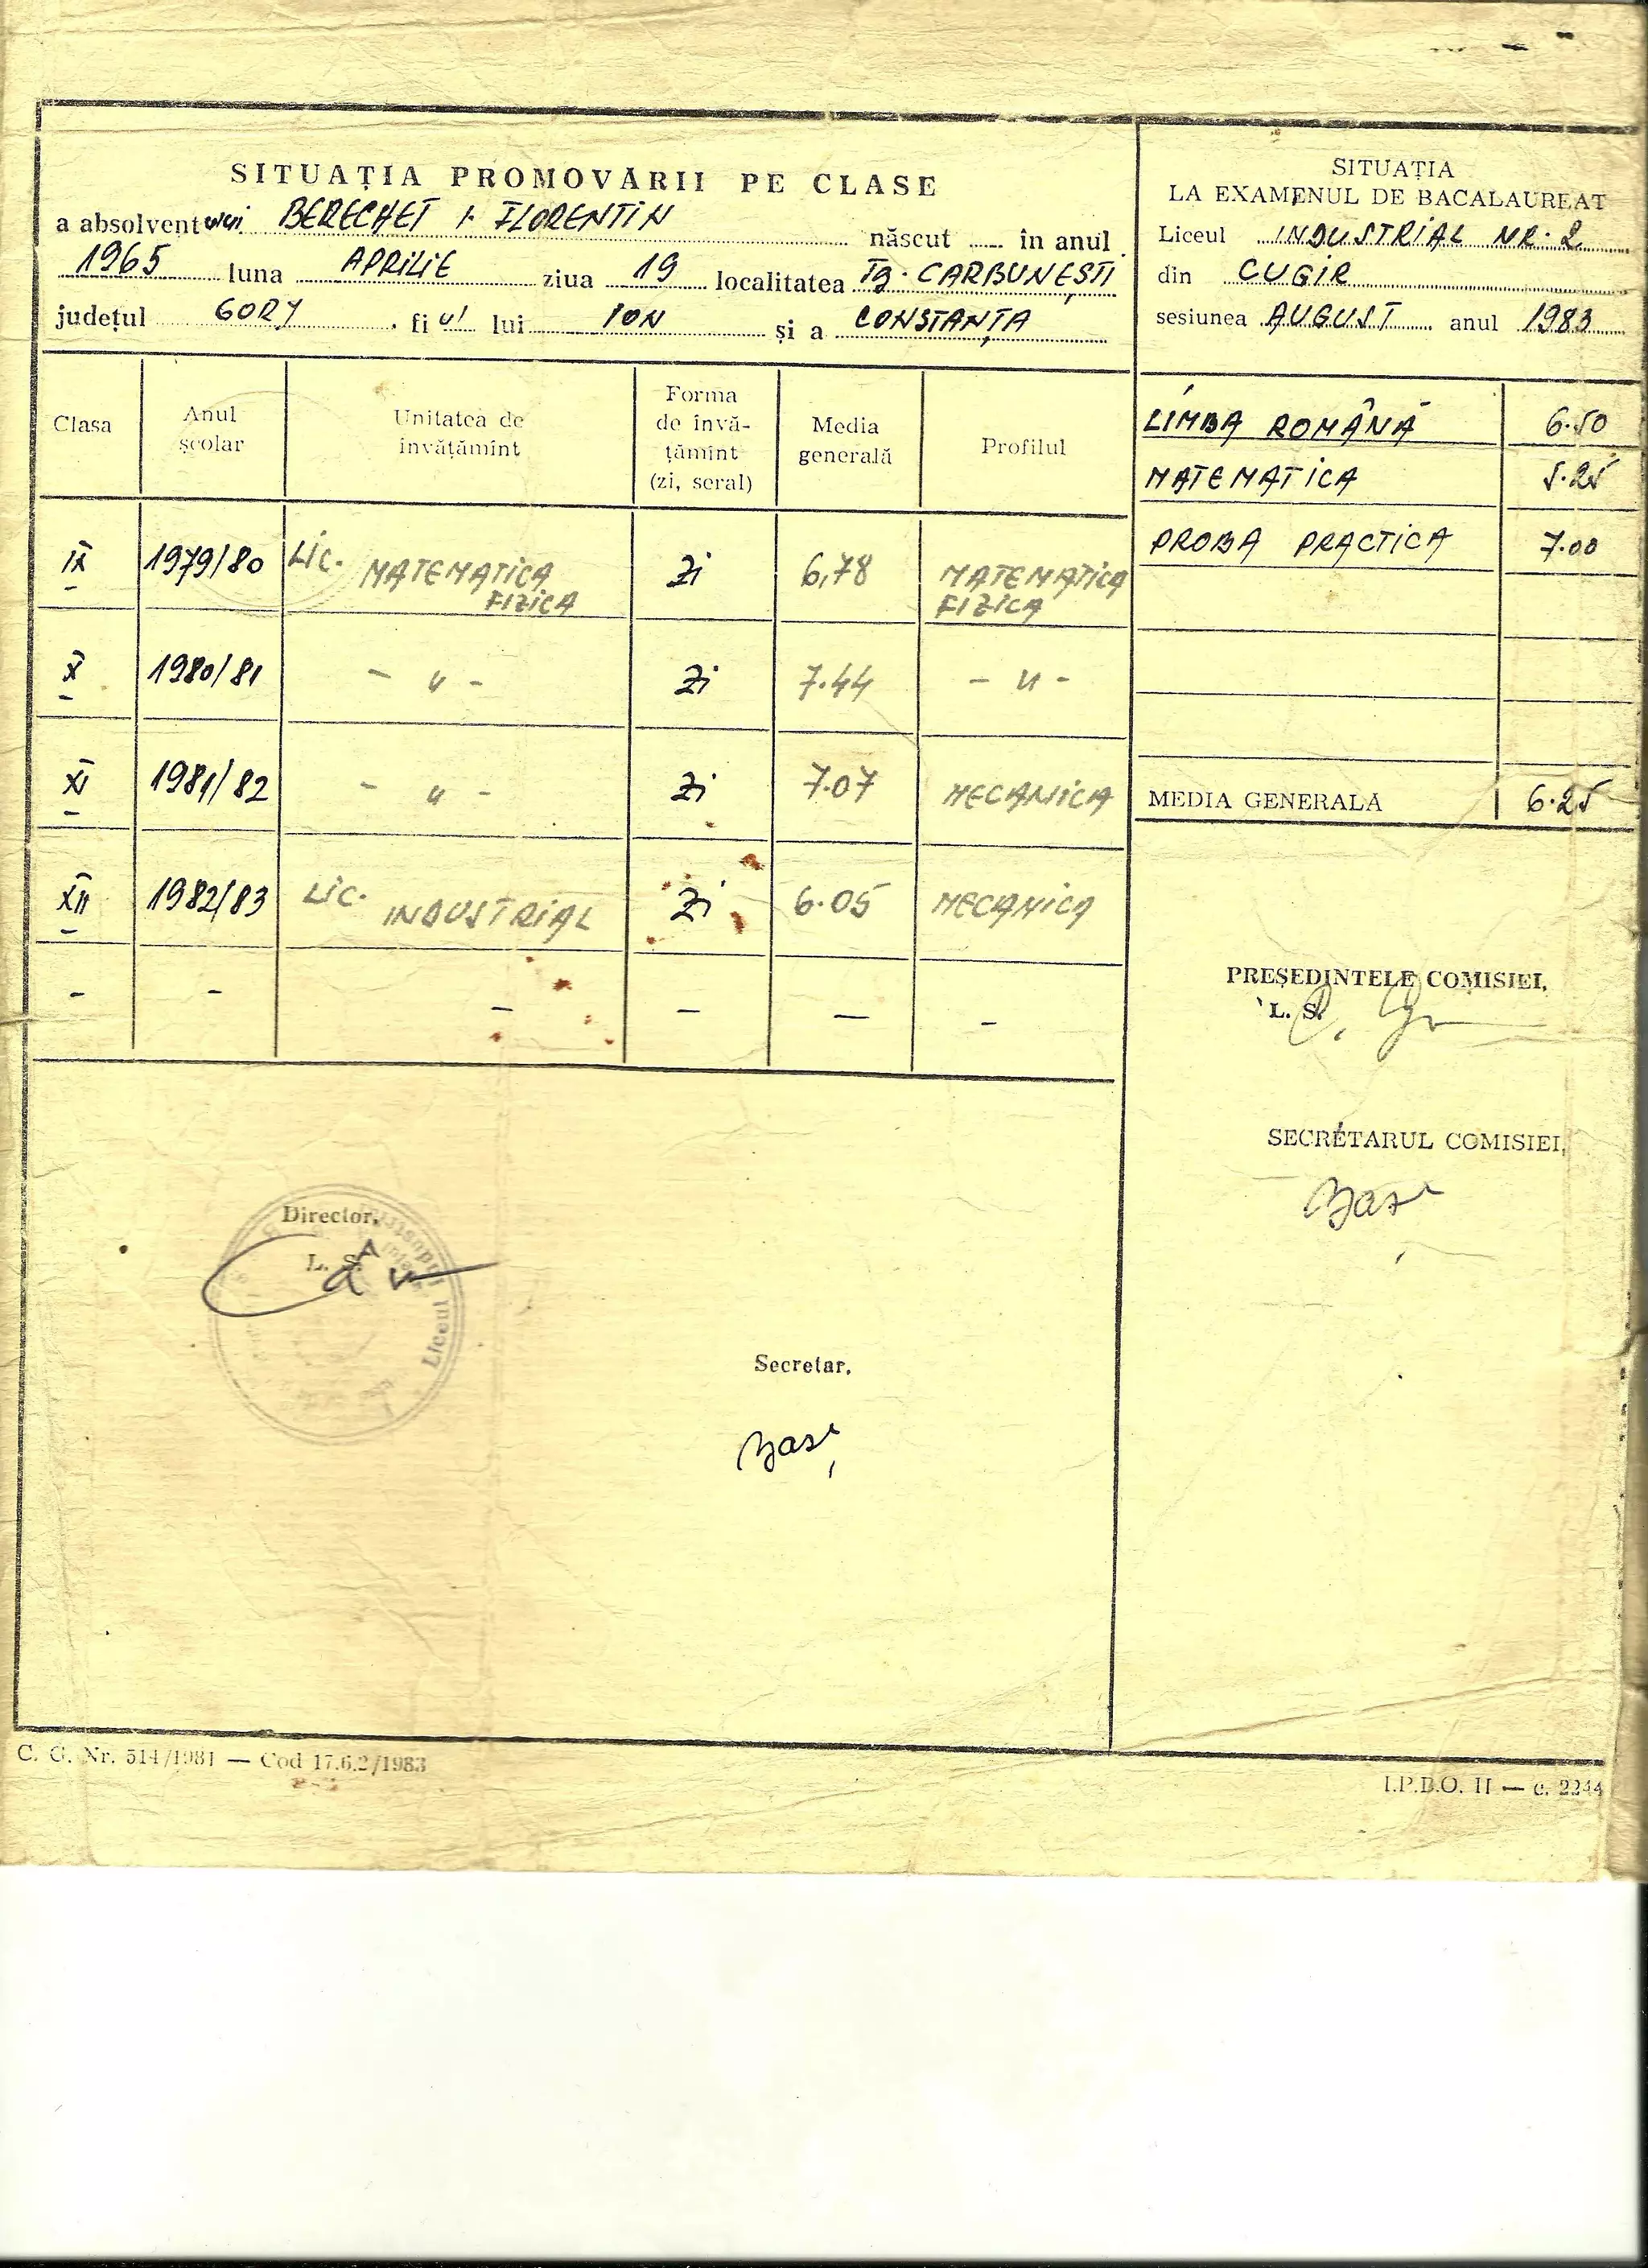 SITUAȚIA PROMOVĂRII PE CLASE
a absolventului BERECHET I. FLORENTIN născut ..... în anul
1965 luna APRILIE ziua 19 localitatea Tg. CARBUNEȘTI
județul GORJ fiul lui ION și a CONSTANȚA
Clasa Anul școlar Unitatea de învățămînt Forma de învățămînt (zi, seral) Media generală Profilul
IX 1979/80 LIC. MATEMATICA FIZICA Zi 6,78 MATEMATICA FIZICA
X 1980/81 - " - Zi 7.44 - " -
XI 1981/82 - " - Zi 7.07 MECANICA
XII 1982/83 LIC. INDUSTRIAL Zi 6.05 MECANICA
- - - - - -
Director,
L. S.
Liceul Industrial
Secretar,
SITUAȚIA
LA EXAMENUL DE BACALAUREAT
Liceul INDUSTRIAL NR. 2
din CUGIR
sesiunea AUGUST anul 1983
LIMBA ROMÂNĂ 6.50
MATEMATICA 5.25
PROBA PRACTICA 7.00
MEDIA GENERALĂ 6.25
PREȘEDINTELE COMISIEI,
L. S.
SECRETARUL COMISIEI,
C. G. Nr. 514/1981 — Cod 17.6.2/1983
I.P.B.O. II — c. 2244